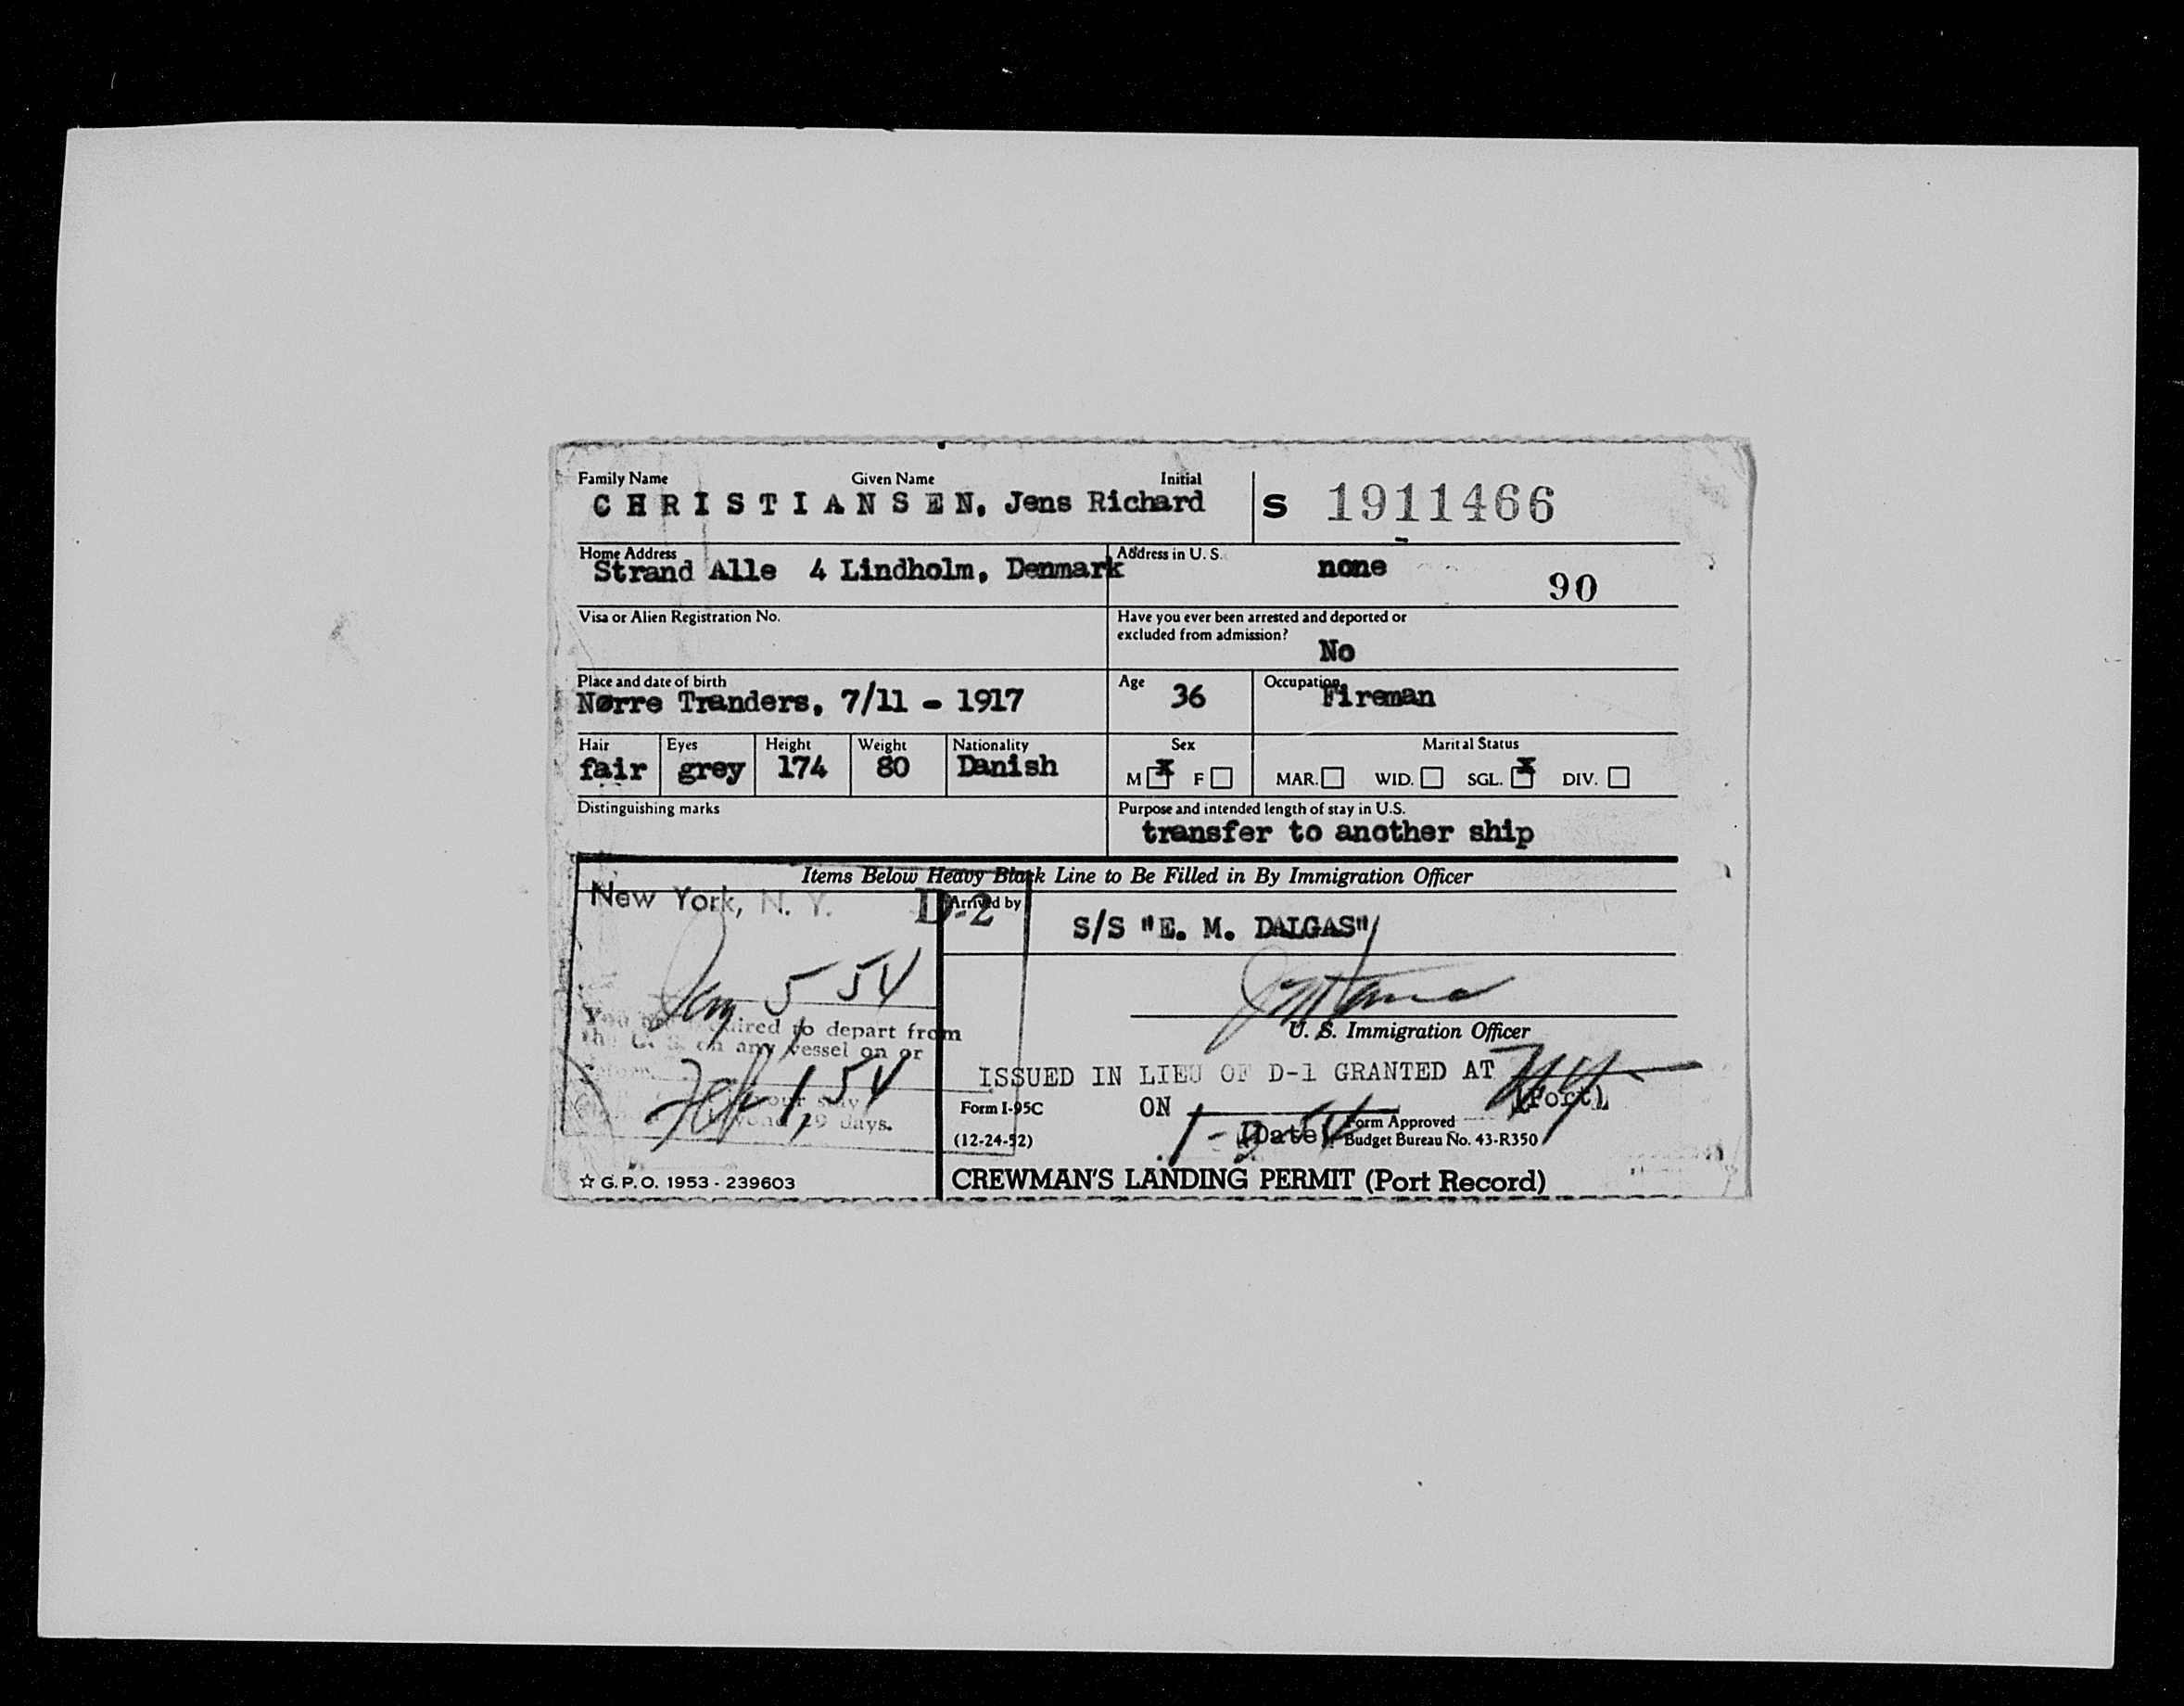 Family Name Given Name Initial
CHRISTIANSEN, Jens Richard
S 1911466
Home Address
Strand Alle 4 Lindholm, Denmark
Address in U. S.
none
90
Visa or Alien Registration No.
Have you ever been arrested and deported or
excluded from admission?
No
Place and date of birth
Nørre Tranders, 7/11 - 1917
Age
36
Occupation
Fireman
Hair Eyes Height Weight Nationality
fair grey 174 80 Danish
Sex
M X F
Marital Status
MAR. WID. SGL. X DIV.
Distinguishing marks
Purpose and intended length of stay in U.S.
transfer to another ship
Items Below Heavy Black Line to Be Filled in By Immigration Officer
New York, N. Y.
D-2
Arrived by
S/S "E. M. DALGAS"
Jan 5 54
to depart from
on any vessel on or
Feb 1, 54
29 days.
U. S. Immigration Officer
ISSUED IN LIEU OF D-1 GRANTED AT NY
(Port)
ON
(Date)
Form I-95C
(12-24-52)
Form Approved
Budget Bureau No. 43-R350
☆ G. P. O. 1953 - 239603
CREWMAN'S LANDING PERMIT (Port Record)